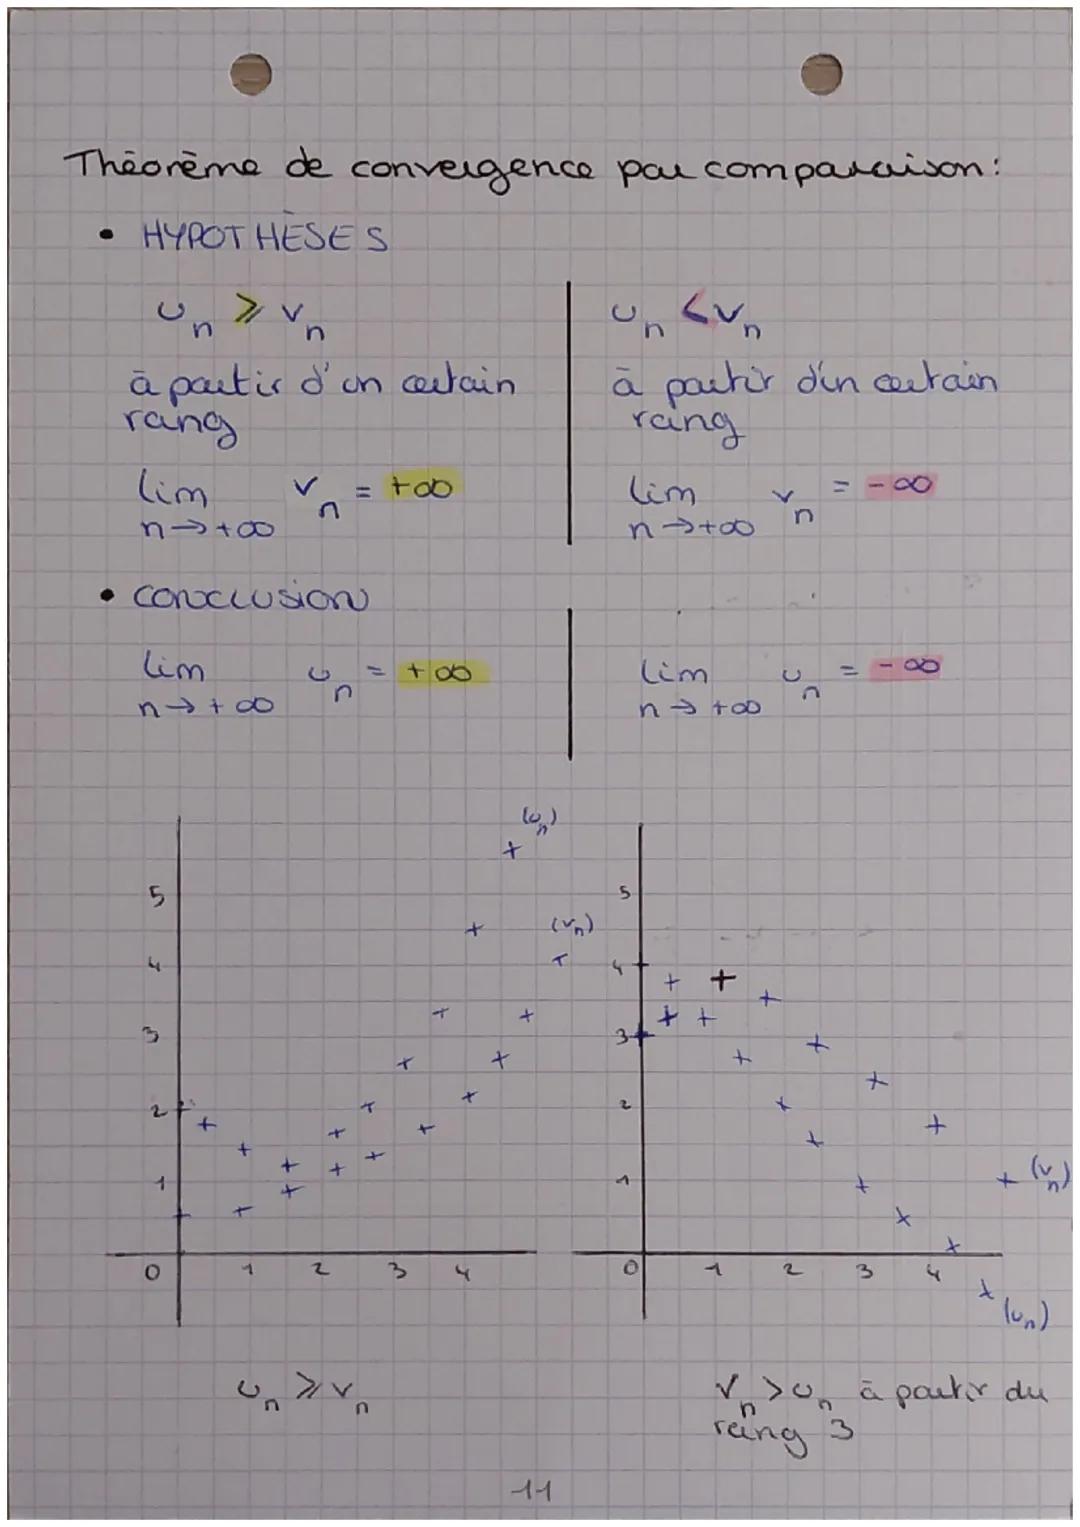 Théorème de convergence par comparaison :
• HYPOTHÈSES
un ⩾ vn
à partir d'un certain
rang
lim vn = +∞
n→+∞
un < vn
à partir d'un certain
rang
lim vn = -∞
n→+∞
• CONCLUSION
lim un = +∞
n→+∞
lim un = -∞
n→+∞
(un)
(vn)
5
4
3
2
1
0 1 2 3 4
un ⩾ vn
5
4
3
2
1
0 1 2 3 4
(vn)
(un)
vn > un à partir du
rang 3
11